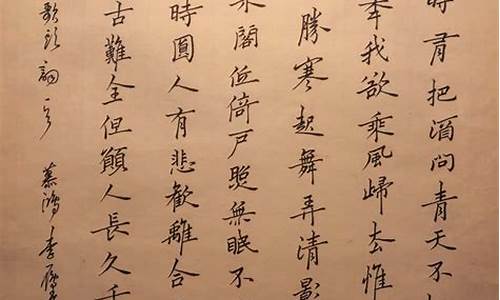 時有把酒問青天不
年我欲乘風歸去惟
勝寒起舞弄清影
朱閣低倚戶照無眠不
時圓人有悲歡離合
古難全但願人長久千
歌頭詞一
慕鴻李